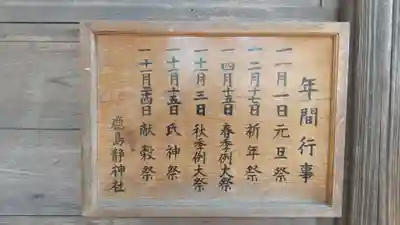 年間行事
一 一月一日 元旦祭
一 二月十七日 祈年祭
一 四月十五日 春季例大祭
一 十一月三日 秋季例大祭
一 十一月十五日 氏神祭
一 十一月二十四日 献穀祭
鹿島静神社